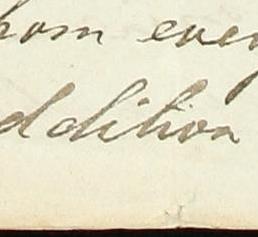 hom every
ddition